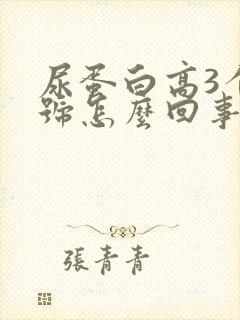 尿蛋白高3个
號怎麼回事
張青青